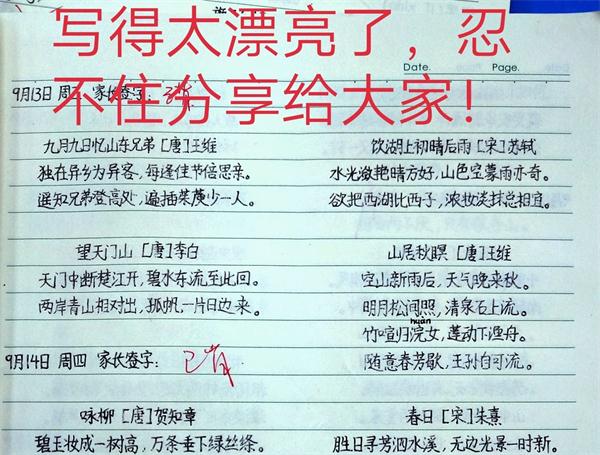 写得太漂亮了，忍
不住分享给大家！
Date. Page.
9月13日 周三 家长签字：
九月九日忆山东兄弟［唐］王维
独在异乡为异客，每逢佳节倍思亲。
遥知兄弟登高处，遍插茱萸少一人。
饮湖上初晴后雨［宋］苏轼
水光潋滟晴方好，山色空蒙雨亦奇。
欲把西湖比西子，浓妆淡抹总相宜。
望天门山［唐］李白
天门中断楚江开，碧水东流至此回。
两岸青山相对出，孤帆一片日边来。
山居秋暝［唐］王维
空山新雨后，天气晚来秋。
明月松间照，清泉石上流。
huàn
竹喧归浣女，莲动下渔舟。
随意春芳歇，王孙自可流。
9月14日 周四 家长签字：已背
咏柳［唐］贺知章
碧玉妆成一树高，万条垂下绿丝绦。
春日［宋］朱熹
胜日寻芳泗水滨，无边光景一时新。